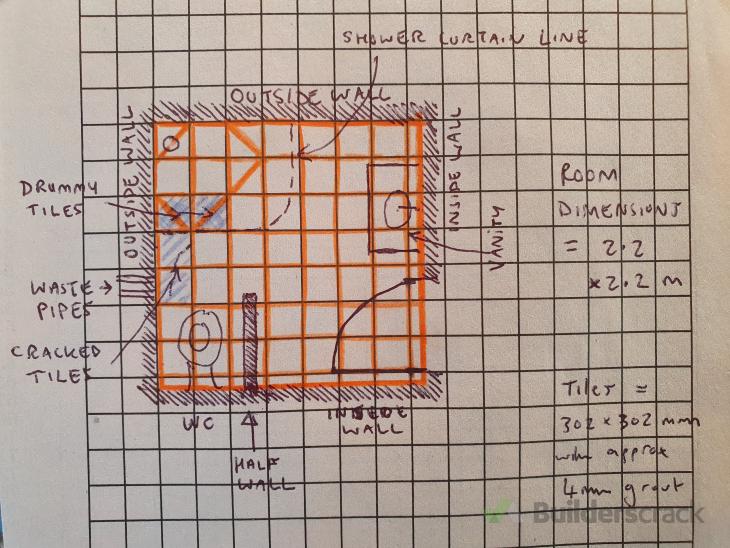 SHOWER CURTAIN LINE
OUTSIDE WALL
OUTSIDE WALL
INSIDE WALL
DRUMMY
TILES
WASTE
PIPES
CRACKED
TILES
VANITY
WC
HALF
WALL
INSIDE
WALL
ROOM
DIMENSIONS
= 2.2
x 2.2 m
Tiles =
302 x 302 mm
with approx
4mm grout
Builderscrack